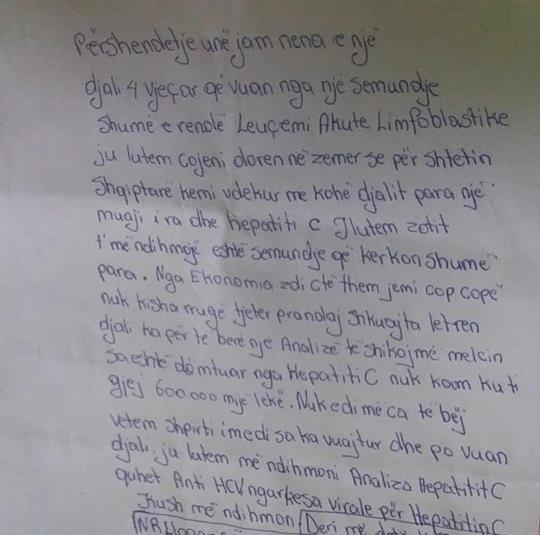 Përshendetje unë jam nena e një
djali 4 vjeçar që vuan nga një semundje
shumë e rendë Leuçemi Akute Limfoblastike
ju lutem çojeni doren në zemer se për shtetin
shqiptarë kemi vdekur me kohë djalit para një
muaji i ra dhe hepatiti C Jlutem zotit
t'më ndihmojë eshtë semundje që kerkon shumë
para. Nga Ekonomia zdi ctë them jemi cop copë
nuk kisha rrugë tjeter prandaj shkuajta letren
djali ka për të berë një Analizë të shikojmë melcin
sa eshtë dëmtuar nga Hepatiti C nuk kam ku ti
gjej 600 000 mijë lekë. Nuk e di më ca të bëj
vetem shpirti im e di sa ka vuajtur dhe po vuan
djali, ja lutem më ndihmoni Analiza Hepatitit C
quhet Anti HCV ngarkesa virale për Hepatitin C
Kush më ndihmon Deri më